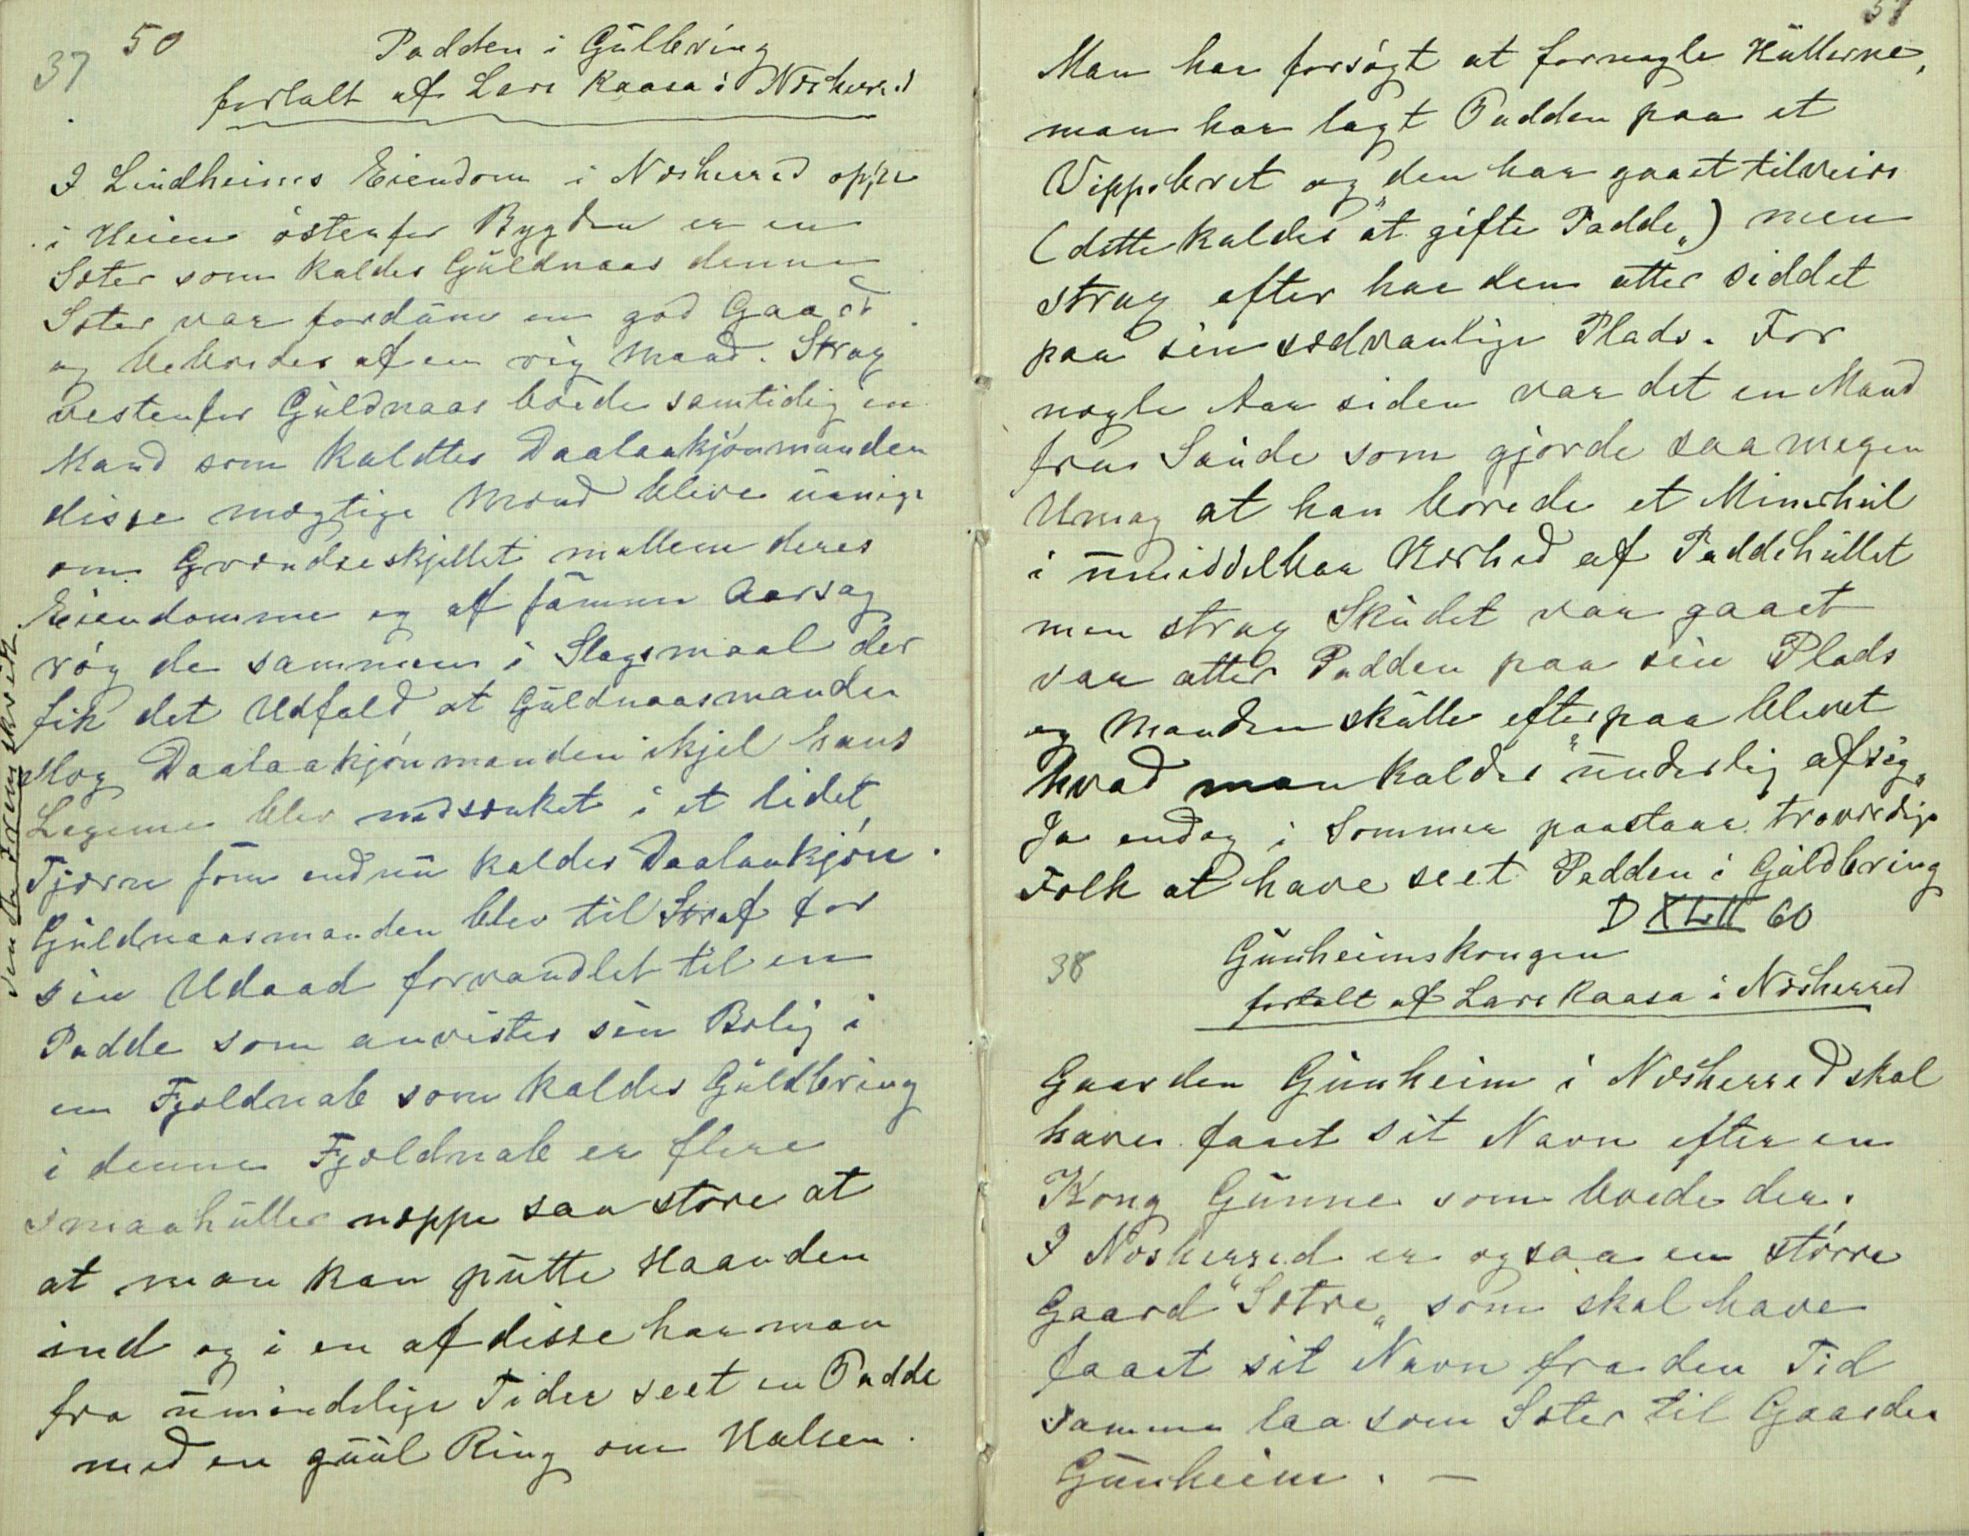 50
37
Padden i Gulbring
fortalt af Lars Kaasa i Næsherred
I Lindheims Eiendom i Næsherred oppe
i Heien østenfor Bygden er en
Sæter som kaldes Guldnaas denne
Sæter var fordums en god Gaard
og beboedes af en rig Mand. Strax
vestenfor Guldnaas boede samtidig en
Mand som kaldtes Daalaakjønmanden
disse mægtige Mænd bleve uenige
om Grændseskjellet mellem deres
Eiendomme og af samme Aarsag
røg de sammen i Slagsmaal der
fik det Udfald at Guldnaasmanden
slog Daalaakjønmanden ihjel hans
Legeme blev nedsænket i et lidet
Tjærn som endnu kaldes Daalaakjøn.
Guldnaasmanden blev til Straf for
sin Udaad forvandlet til en
Padde som anvistes sin Bolig i
en Fjeldnab som kaldes Guldbring
i denne Fjeldnab er flere
smaahuller neppe saa store at
at man kan putte Haanden
ind og i en af disse har man
fra umindelige Tider seet en Padde
med en guul Ring om Halsen.
51
Man har forsøgt at fornagle Hullerne,
man har lagt Padden paa et
Vippebret og den har gaaet tilveirs
(dette kaldes "at gifte Padde„) men
strax efter har den atter siddet
paa sin sædvanlige Plads. For
nogle Aar siden var det en Mand
fra Saude som gjorde saa megen
Umag at han borede et Minerhul
i umiddelbar Nærhed af Paddehullet
men strax Skudet var gaaet
var atter Padden paa sin Plads
og Manden skulle efterpaa blevet
hvad man kalder "underlig af sig„
Ja endog i Sommer paastaar troværdige
Folk at have seet Padden i Guldbring
D XLII 60
38
Gunheimskongen
fortalt af Lars Kaasa i Næsherred
Gaarden Gunheim i Næsherred skal
have faaet sit Navn efter en
Kong Gunne som boede der.
I Næsherred er ogsaa en større
Gaard "Sætre„ som skal have
faaet sit Navn fra den Tid
samme laa som Sæter til Gaarden
Gunheim. —